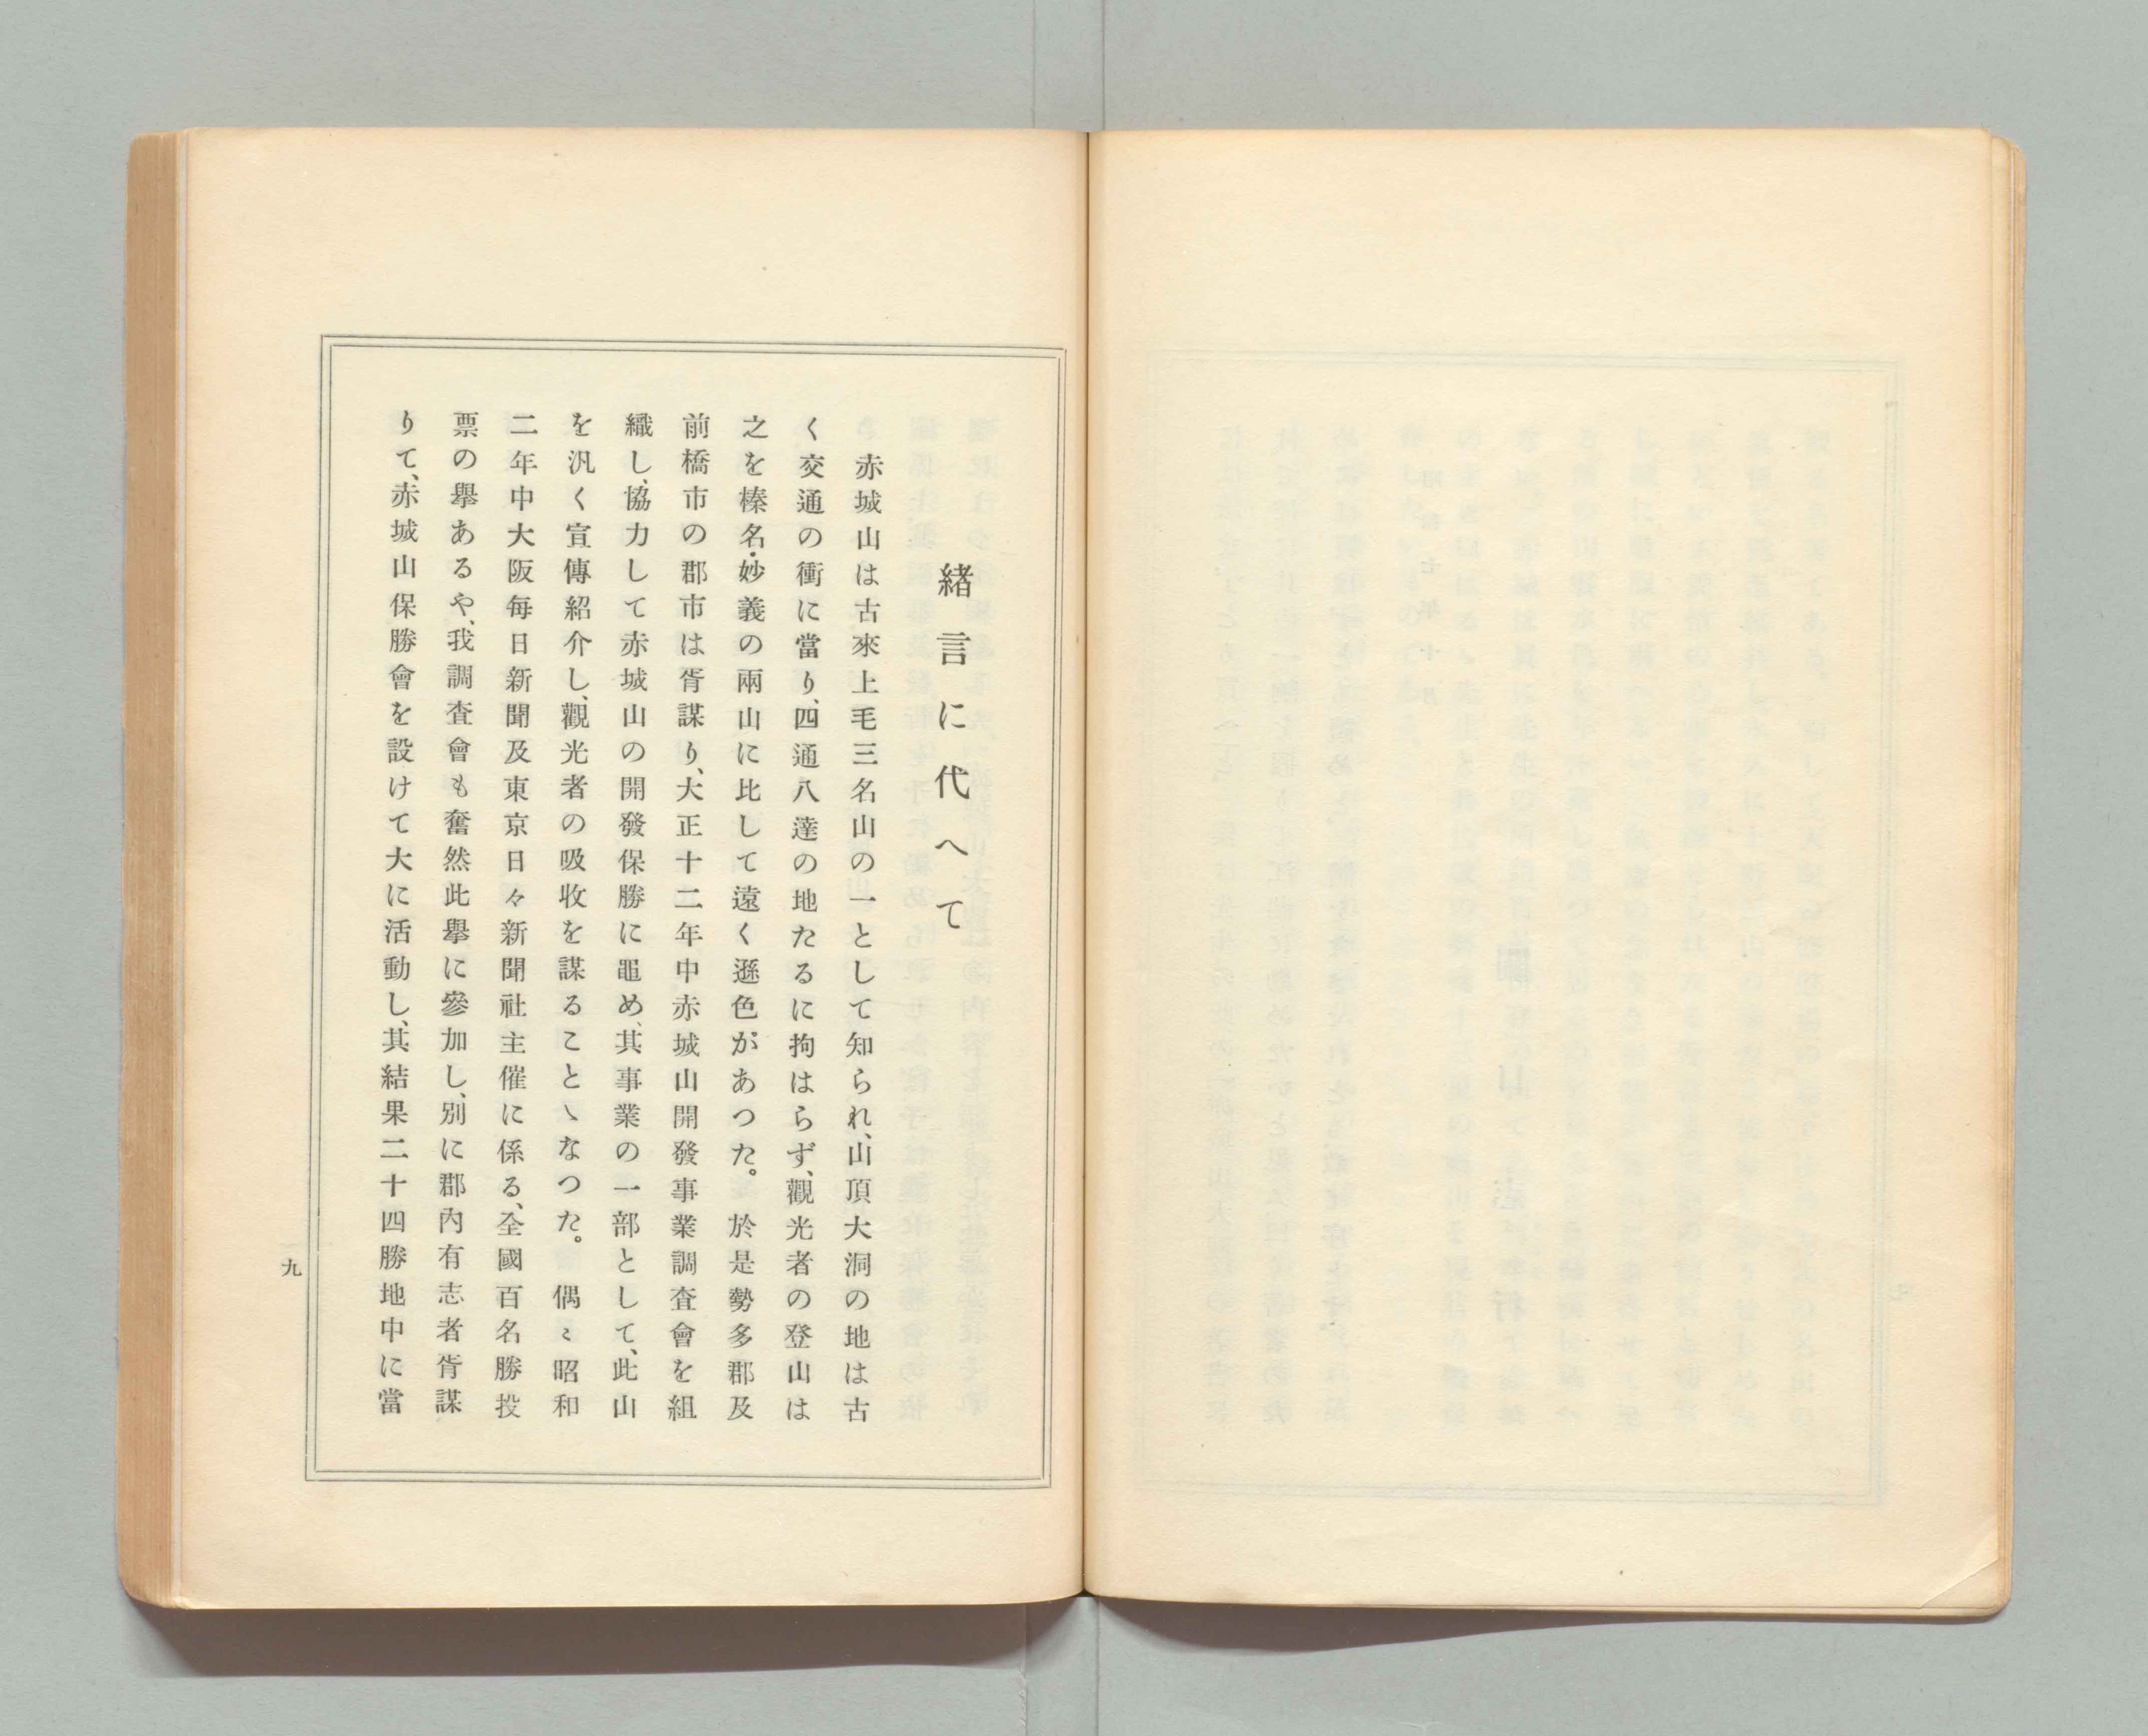 緖言に代へて
赤城山は古來上毛三名山の一として知られ、山頂大洞の地は古
く交通の衝に當り、四通八達の地たるに拘はらず、觀光者の登山は
之を榛名・妙義の兩山に比して遠く遜色があつた。於是勢多郡及
前橋市の郡市は胥謀り、大正十二年中赤城山開發事業調査會を組
織し、協力して赤城山の開發保勝に黽め、其事業の一部として、此山
を汎く宣傳紹介し、觀光者の吸收を謀ることゝなつた。偶〻昭和
二年中大阪每日新聞及東京日々新聞社主催に係る、全國百名勝投
票の擧あるや、我調査會も奮然此擧に參加し、別に郡內有志者胥謀
りて、赤城山保勝會を設けて大に活動し、其結果二十四勝地中に當
九